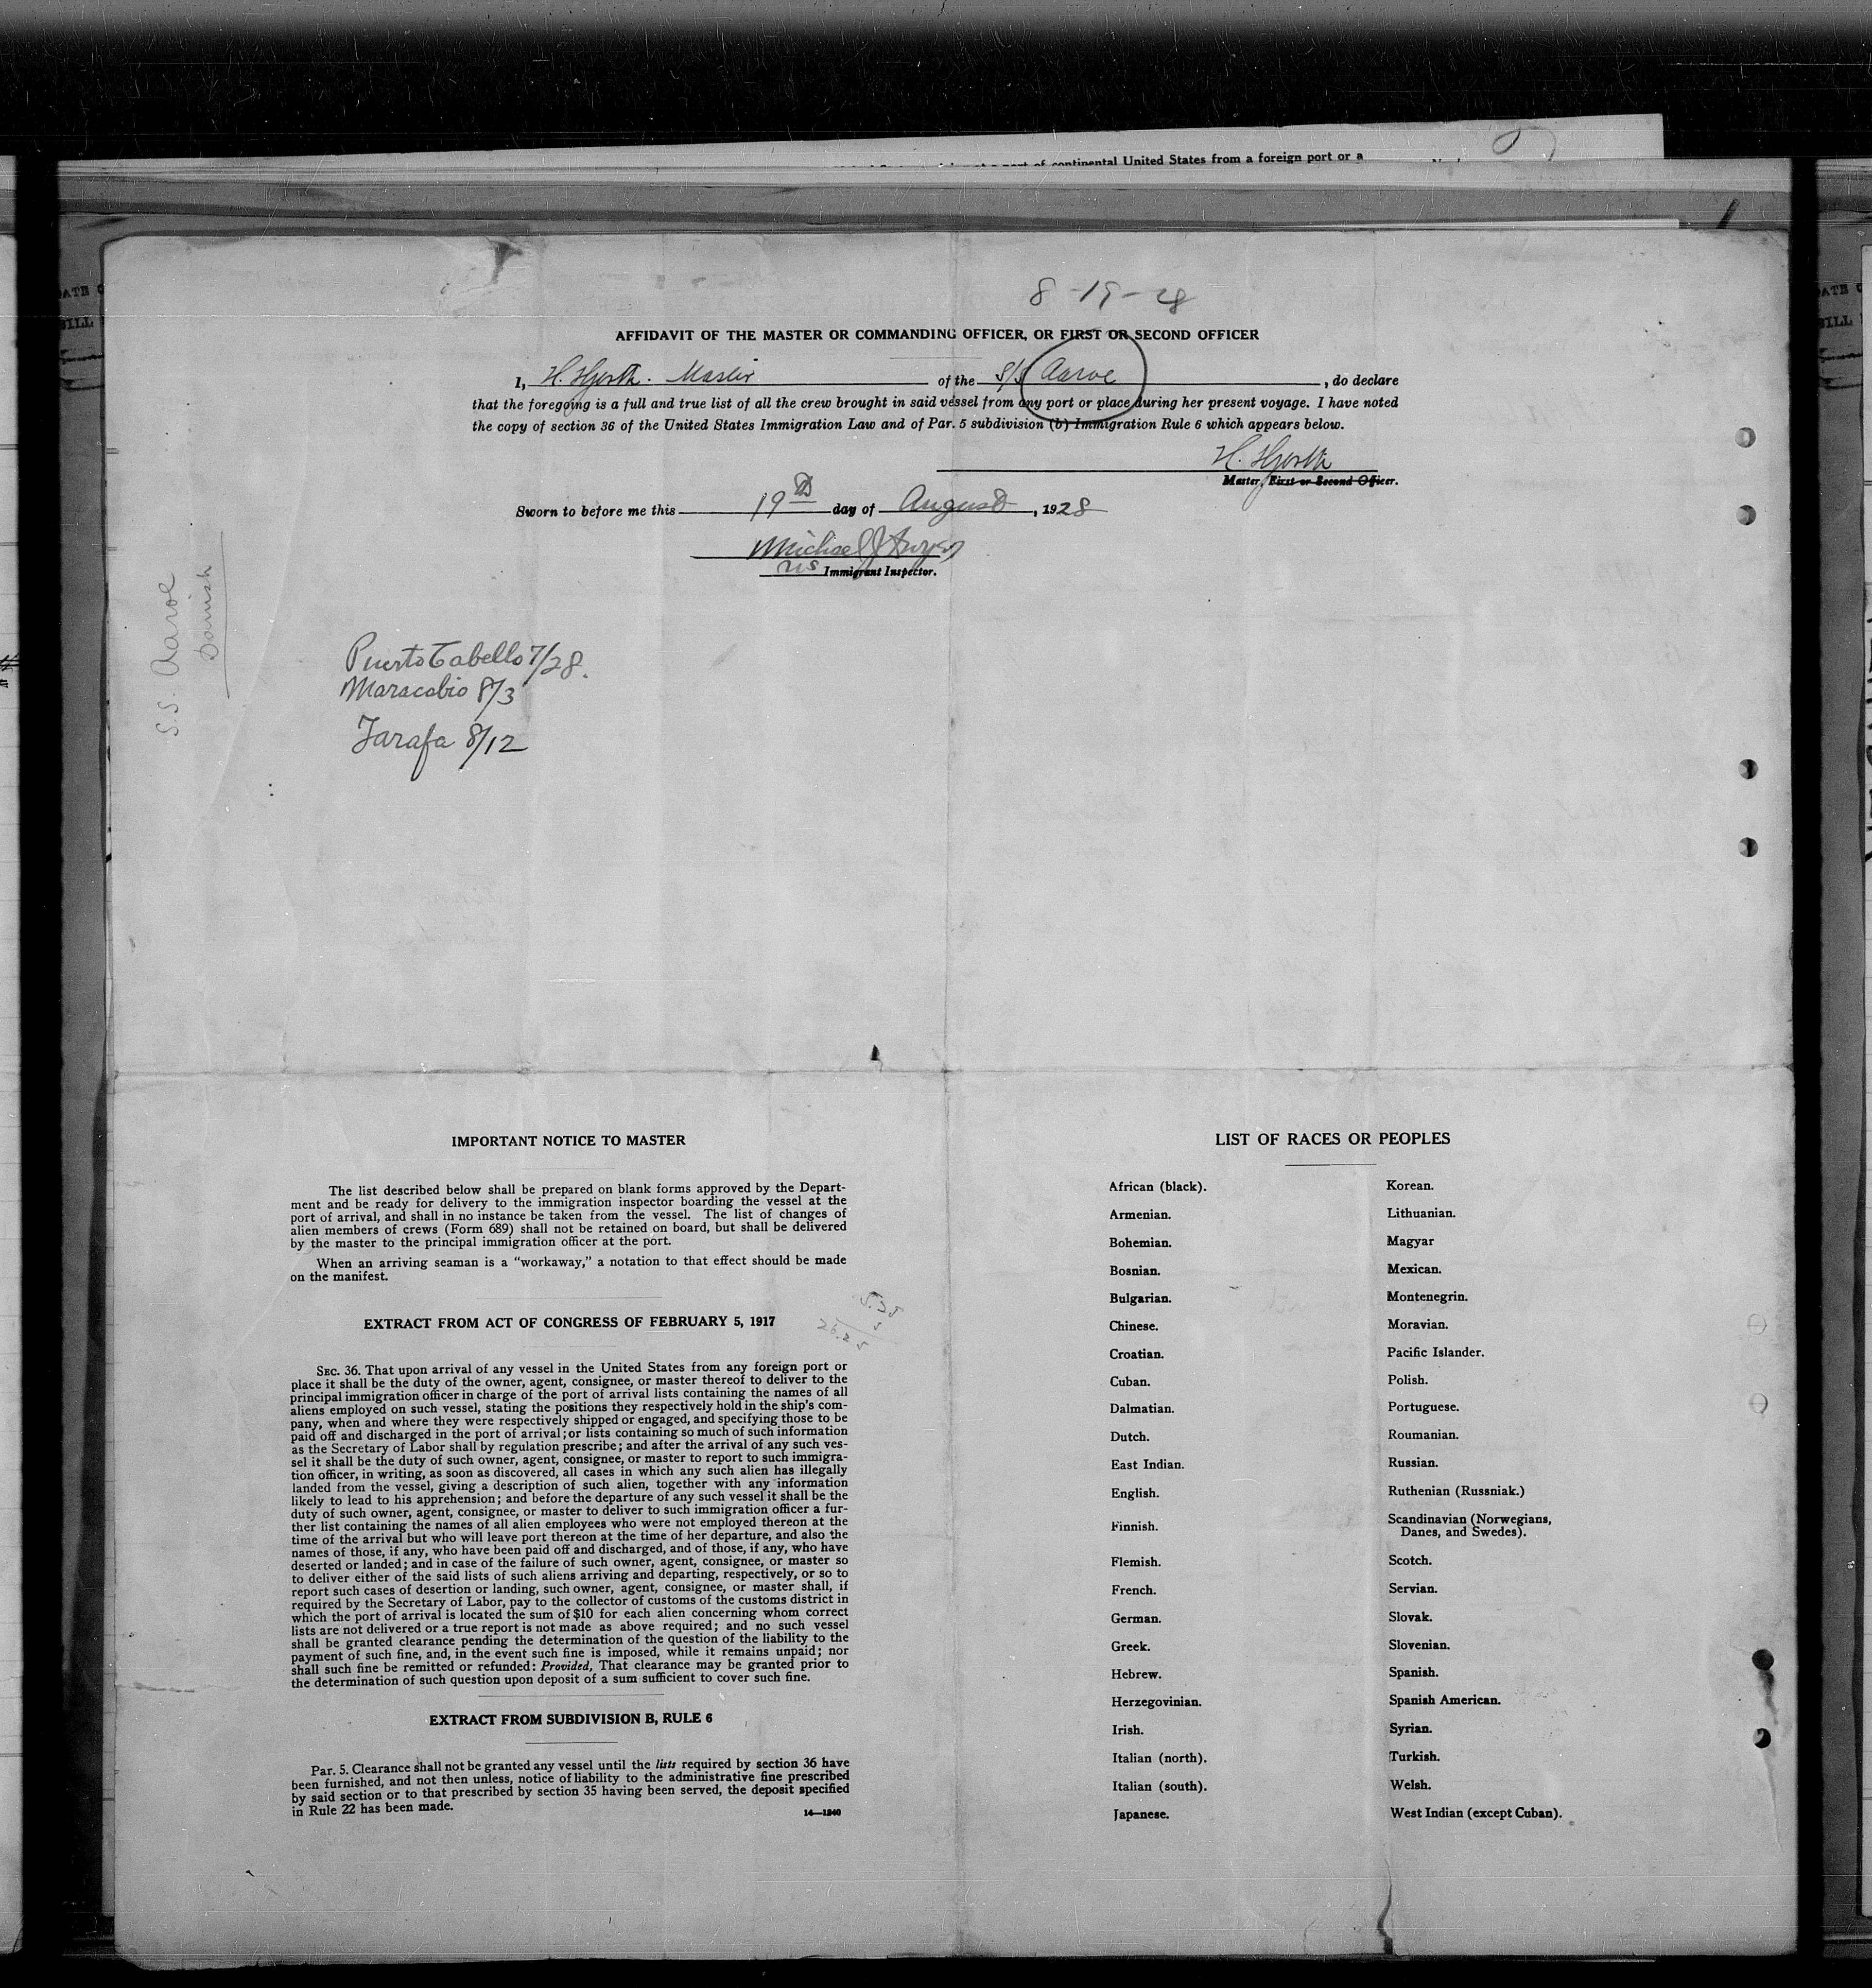 continental United States from a foreign port or a
8-19-28
AFFIDAVIT OF THE MASTER OR COMMANDING OFFICER, OR FIRST OR SECOND OFFICER
I, H. Hjorth. Master of the S/S Aaroe, do declare
that the foregoing is a full and true list of all the crew brought in said vessel from any port or place during her present voyage. I have noted
the copy of section 36 of the United States Immigration Law and of Par. 5 subdivision (b) Immigration Rule 6 which appears below.
H. Hjorth
Master, First or Second Officer.
Sworn to before me this 19th day of August, 1928
Michael J
US Immigrant Inspector.
S.S. Aaroe
Danish
Puerto Cabello 7/28.
Maracabio 8/3
Tarafa 8/12
IMPORTANT NOTICE TO MASTER
The list described below shall be prepared on blank forms approved by the Depart-
ment and be ready for delivery to the immigration inspector boarding the vessel at the
port of arrival, and shall in no instance be taken from the vessel. The list of changes of
alien members of crews (Form 689) shall not be retained on board, but shall be delivered
by the master to the principal immigration officer at the port.
When an arriving seaman is a "workaway," a notation to that effect should be made
on the manifest.
EXTRACT FROM ACT OF CONGRESS OF FEBRUARY 5, 1917
SEC. 36. That upon arrival of any vessel in the United States from any foreign port or
place it shall be the duty of the owner, agent, consignee, or master thereof to deliver to the
principal immigration officer in charge of the port of arrival lists containing the names of all
aliens employed on such vessel, stating the positions they respectively hold in the ship's com-
pany, when and where they were respectively shipped or engaged, and specifying those to be
paid off and discharged in the port of arrival; or lists containing so much of such information
as the Secretary of Labor shall by regulation prescribe; and after the arrival of any such ves-
sel it shall be the duty of such owner, agent, consignee, or master to report to such immigra-
tion officer, in writing, as soon as discovered, all cases in which any such alien has illegally
landed from the vessel, giving a description of such alien, together with any information
likely to lead to his apprehension; and before the departure of any such vessel it shall be the
duty of such owner, agent, consignee, or master to deliver to such immigration officer a fur-
ther list containing the names of all alien employees who were not employed thereon at the
time of the arrival but who will leave port thereon at the time of her departure, and also the
names of those, if any, who have been paid off and discharged, and of those, if any, who have
deserted or landed; and in case of the failure of such owner, agent, consignee, or master so
to deliver either of the said lists of such aliens arriving and departing, respectively, or so to
report such cases of desertion or landing, such owner, agent, consignee, or master shall, if
required by the Secretary of Labor, pay to the collector of customs of the customs district in
which the port of arrival is located the sum of $10 for each alien concerning whom correct
lists are not delivered or a true report is not made as above required; and no such vessel
shall be granted clearance pending the determination of the question of the liability to the
payment of such fine, and, in the event such fine is imposed, while it remains unpaid; nor
shall such fine be remitted or refunded: Provided, That clearance may be granted prior to
the determination of such question upon deposit of a sum sufficient to cover such fine.
EXTRACT FROM SUBDIVISION B, RULE 6
Par. 5. Clearance shall not be granted any vessel until the lists required by section 36 have
been furnished, and not then unless, notice of liability to the administrative fine prescribed
by said section or to that prescribed by section 35 having been served, the deposit specified
in Rule 22 has been made.
14—1240
LIST OF RACES OR PEOPLES
African (black).
Armenian.
Bohemian.
Bosnian.
Bulgarian.
Chinese.
Croatian.
Cuban.
Dalmatian.
Dutch.
East Indian.
English.
Finnish.
Flemish.
French.
German.
Greek.
Hebrew.
Herzegovinian.
Irish.
Italian (north).
Italian (south).
Japanese.
Korean.
Lithuanian.
Magyar
Mexican.
Montenegrin.
Moravian.
Pacific Islander.
Polish.
Portuguese.
Roumanian.
Russian.
Ruthenian (Russniak.)
Scandinavian (Norwegians,
Danes, and Swedes).
Scotch.
Servian.
Slovak.
Slovenian.
Spanish.
Spanish American.
Syrian.
Turkish.
Welsh.
West Indian (except Cuban).